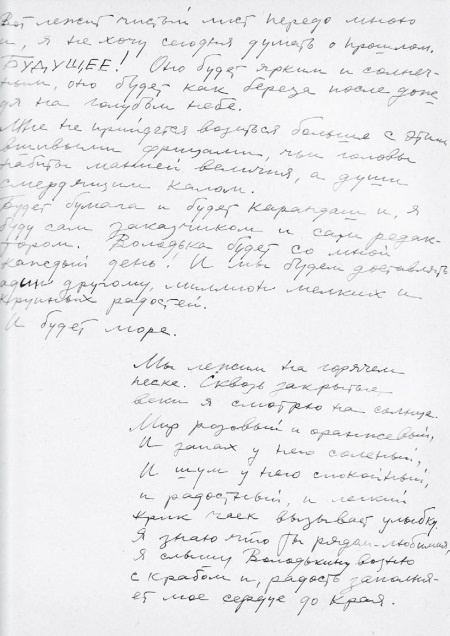 Вот лежит чистый лист передо мною
и, я не хочу сегодня думать о прошлом.
БУДУЩЕЕ! Оно будет ярким и солнеч-
ным, оно будет как береза после дож-
дя на голубом небе.
Мне не прийдется возиться больше с этим
вшивыми фрицами, чьи головы
набиты манией величия, а души
смердящим калом.
Будет бумага и будет карандаш и, я
буду сам заказчиком и сам редак-
тором. Володька будет со мной
каждый день! И мы будем доставлять
один другому, миллион мелких и
крупных радостей.
И будет море.
Мы лежим на горячем
песке. Сквозь закрытые
веки я смотрю на солнце.
Мир розовый и оранжевый,
И запах у него соленый,
И шум у него спокойный,
и радостный, и легкий
крик чаек вызывает улыбку.
Я знаю что ты рядом - любимая,
Я слышу Володькину возню
с крабом и, радость заполня-
ет мое сердце до края.